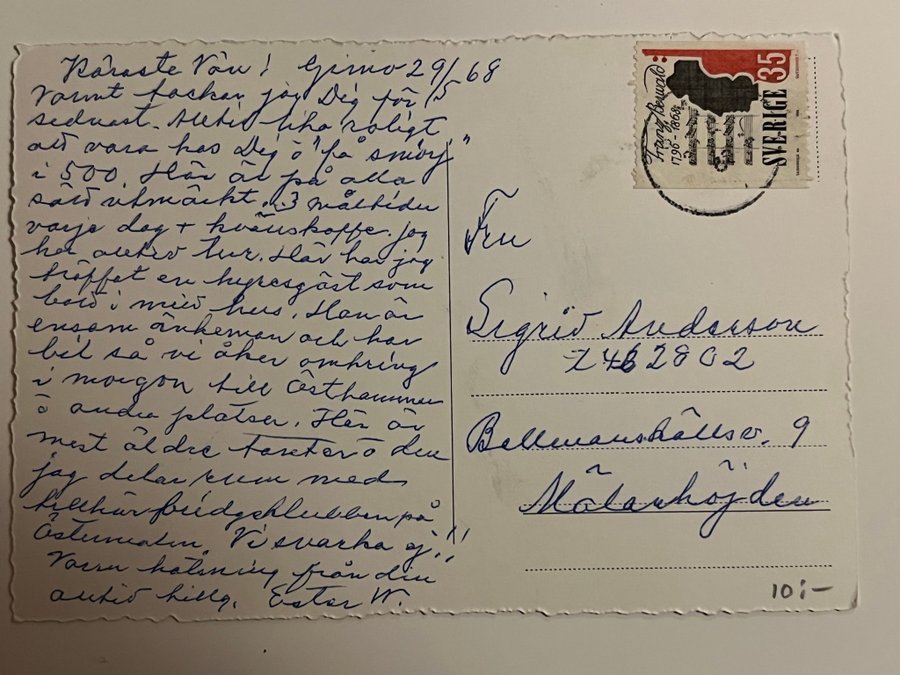 Käraste Vän! Gimo 29/5 68
Varmt tackar jag Dig för
sednast. Alltid lika roligt
att vara hos Dig ö "få smörj"
i 500. Här är på alla
sätt utmärkt. 3 måltider
varje dag + kvällskaffe. jag
har alltid tur. Här har jag
träffat en hyresgäst som
bott i mitt hus. Han är
ensam änkeman och har
bil så vi åker omkring
i morgon till Östhammar
ö andra platser. Här är
mest äldre tanter ö den
jag delar rum med
tillhör bridgeklubben på
Östermalm. Vi svarka ej!!
Varm hälsning från din
alltid tillg. Ester W.
Franz Berwald
1796-1868
SVERIGE 35
Fru
Sigrid Anderson
7462802
Bellmanskällsv. 9
Mälarhöjden
10:-